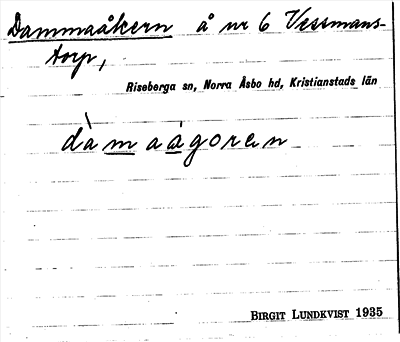 Dammaåkern å nr 6 Vessmans-
torp,
Riseberga sn, Norra Åsbo hd, Kristianstads län
dàmaágoren
BIRGIT LUNDKVIST 1935